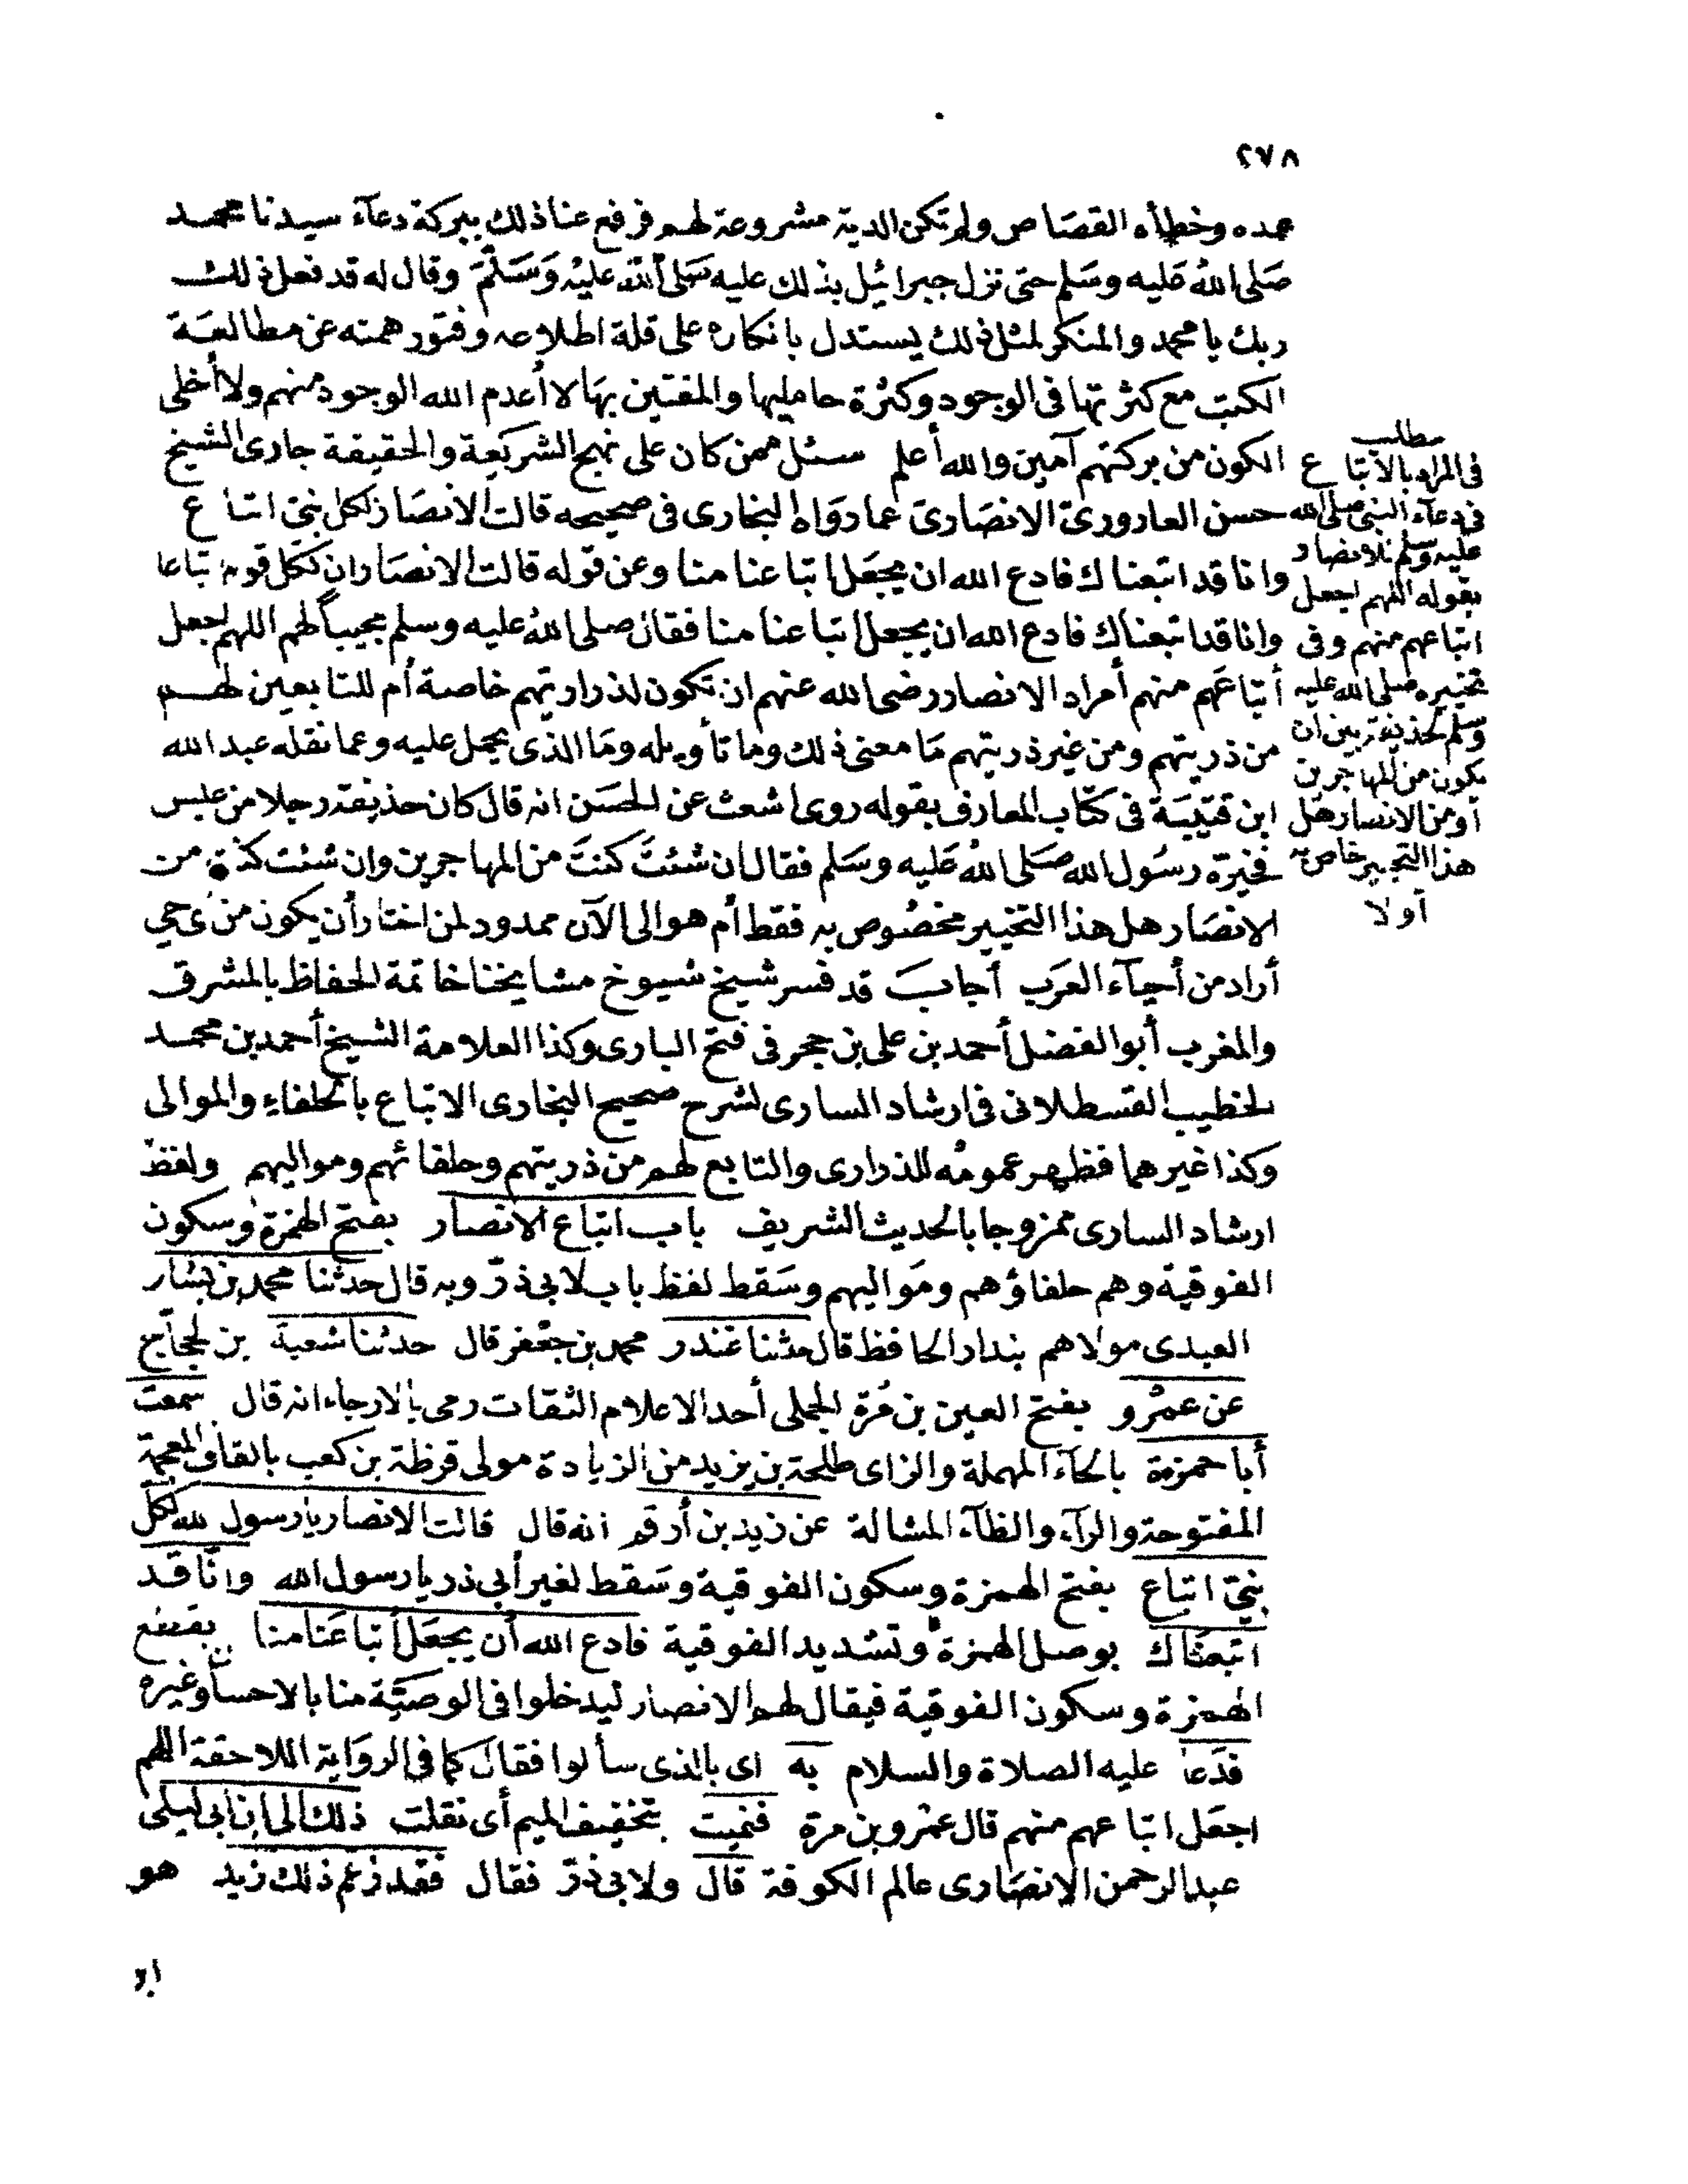 ٢٧٨
عمده وخطأه القصاص ولم تكن الدية مشروعة لهم فرفع عنا ذلك ببركة دعآء سيدنا محمد
صَلى اللهُ عَليه وسَلم حتى نزل جبرائيل بذلك عليه صَلى اللهُ عليْه وَسَلمَ وقال له قد فعل ذلك
ربك يا محمد والمنكر لمثل ذلك يستدل بانكاره على قلة اطلاعه وفتور همته عن مطالعة
الكتب مع كثرتها فى الوجود وكثرة حامليها والمفتين بهَا لا أعدم الله الوجود منهم ولا أخلى
الكون من بركتهم آمين والله أعلم سئل ممن كان على نهج الشريعة والحقيقة جارى الشيخ
حسن العادورىّ الانصَارىّ عما روَاه البخارى فى صحيحه قالت الانصَار لكل نبىّ اتباع
وانا قد اتبعناك فادع الله ان يجعَل اتباعنا منا وعن قوله قالت الانصَار ان لكل قوم اتباعا
وانا قد اتبعناك فادع الله ان يجعل اتباعنا منا فقال صلى اللهُ عليه وسلم مجيباً لهم اللهم اجعل
أتباعَهم منهم أمراد الانصار رضى الله عنهم ان تكون لذراريتهم خاصة أم للتابعين لهم
من ذريتهم ومن غير ذريتهم مَا معنى ذلك وما تأويله ومَا الذى يحمل عليه وعما نقله عبد الله
ابن قتيبَة فى كتَاب المعارف بقوله روى اشعث عن الحسَن انه قال كان حذيفة رجلا من عبس
فخيرّه رسُول الله صَلى اللهُ عَليه وسَلم فقال ان شئتَ كنتَ من المهاجرين وان شئت كنت من
الانصَار هل هذا التخيير مخصُوص به فقط أم هو الى الآن ممدود لمن اختار أن يكون من أى حى
أراد من أحيآء العرَب أجابَ قد فسر شيخ شيوخ مشايخنا خاتمة الحفاظ بالمشرق
والمغرب أبو الفضل أحمد بن على بن حجر فى فتح البارى وكذا العلامة الشيخ أحمد بن محمد
الخطيب القسطلانى فى ارشاد السارى لشرح صحيح البخارى الاتباع بالحلفاء والموالى
وكذا غيرهما فظهر عمومُه للذرارى والتابع لهم من ذريتهم وحلفائهم ومواليهم ولفظ
ارشاد السارى ممزوجا بالحديث الشريف باب اتباع الانصار بفتح الهمزة وسكون
الفوقية وهم حلفاؤهم ومَواليهم وسَقط لفظ باب لابى ذرّ وبه قال حدثنا محمد بن بشار
العبدى مولاهم بندار الحافظ قال حدثنا غندر محمد بن جعْفر قال حدثنا شعبة بن الحجّاج
عن عمْرو بفتح العين بن مُرة الجملى أحد الاعلام الثقات رمى بالارجاء انه قال سمعت
أبا حمزة بالحآء المهملة والزاى طلحة بن يزيد من الزيادة مولى قرظة بن كعب بالقاف المعجمة
المفتوحة والرآء والظآء المشالة عن زيد بن أرقم انه قال قالت الانصار يارسول الله لكل
نبىّ اتباع بفتح الهمزة وسكون الفوقية وسَقط لغير أبى ذر يارسول الله وانّا قد
اتبعنَاك بوصل الهمزة وتشديد الفوقية فادع الله أن يجعَل أتباعَنا منا بقطع
الهمزة وسكون الفوقية فيقال لهم الانصار ليدخلوا فى الوصيَّة منا بالاحسان وغيره
فدَعا عليه الصلاة والسلام به اى بالذى سألوا فقال كما فى الروَاية اللاحقة اللهم
اجعَل اتباعهم منهم قال عمْرو بن مرة فنميت بتخفيف الميم أى نقلت ذلك الى ابن أبى ليلى
عبد الرحمن الانصَارى عالم الكوفة قال ولابى ذرّ فقال فقد زعم ذلك زيد هو
مطلب
فى المراد بالاتباع
فى دعآء النبى صلى الله
عليه وسلم للانصار
بقوله اللهم اجعل
اتباعهم منهم وفى
تخييره صلى الله عليه
وسلم لحذيفة بين ان
يكون من المهاجرين
أو من الانصار هل
هذا التخيير خاص به
أولا